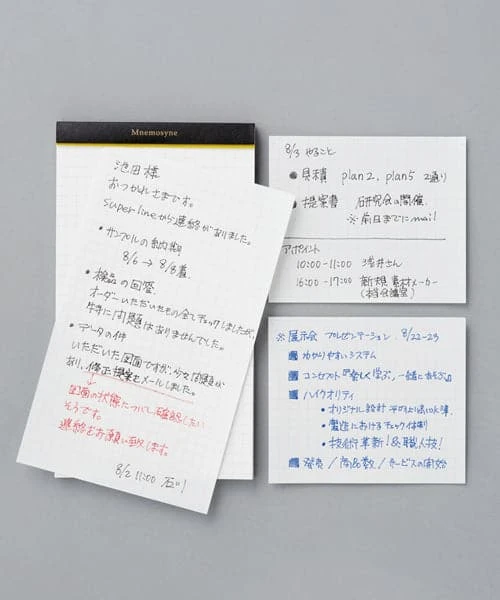 Mnemosyne
池田様
おつかれさまです。
super lineから連絡がありました。
・サンプルの納期
8/6→8/8着
・検品の回答
オーダーいただいたもの全てチェックしましたが、
特に問題はありませんでした。
・データの件
いただいた図面ですが、少々問題が
あり、修正提案をメールしました。
図面の状態について確認したい
そうです。
連絡をお願い致します。
8/2 11:00 石川
8/3 やること
見積 plan2, plan5 2通り
提案書 研究会の開催
※前日までにmail
アポイント
10:00-11:00 浅井さん
16:00-17:00 新規 素材メーカー
(本会議室)
※展示会 プレゼンテーション 8/22-23
わかりやすいシステム
コンセプト『楽しく学ぶ、一緒にあそぶ』
ハイクオリティ
・オリジナル設計
・製造におけるチェック体制
・技術革新!&職人技!
発売/商品数/サービスの開始